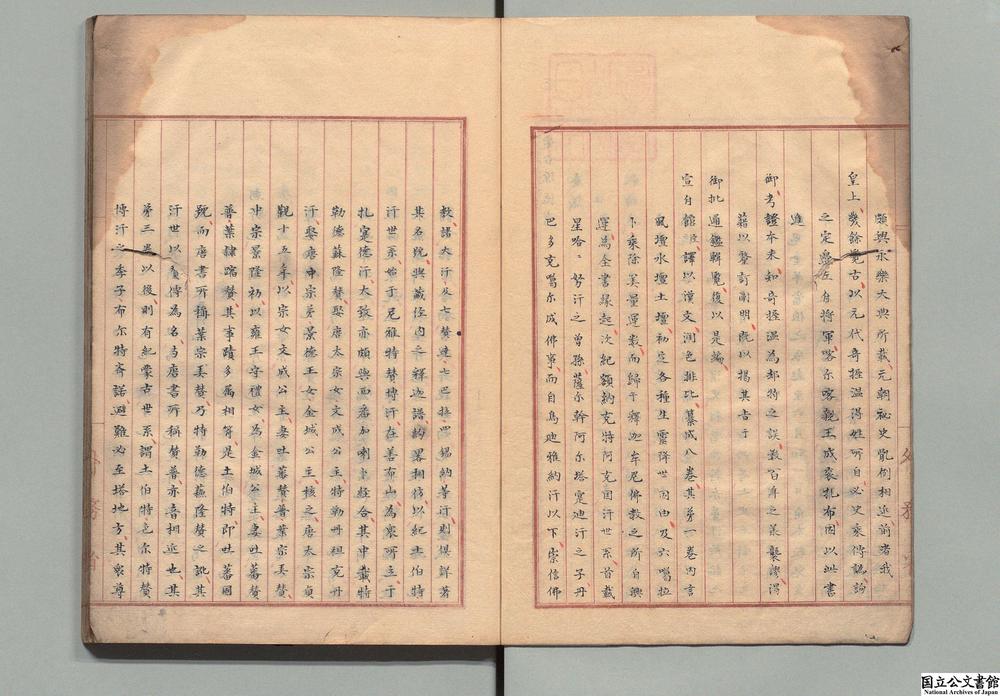 頗與永樂大典所載元朝祕史體例相近前者我
皇上幾餘覽古以元代奇握溫得姓所自必史乘傳譌諭
之定邊左副將軍喀爾喀親王成袞扎布因以此書
進
御考證本末知奇握溫為却特之誤數百年之承襲謬誤
藉以釐訂闡明既以揭其旨于
御批通鑑輯覽復以是編
宣付館臣譯以漢文潤色排比纂成八卷其第一卷內言
風壇水壇土壇初定各種生靈降世因由及六噶拉
卜乘除算量運數而歸于釋迦牟尼佛教之所自興
運為全書緣起次紀額納克特阿克國汗世系首載
星哈哈努汗之曾孫薩爾幹阿爾塔實迪汗之子丹
巴多克噶爾成佛事而自烏迪雅納汗以下崇信佛
教諸大汗及七贊達七巴拉四錫納等汗則俱詳著
其名號與藏經內之釋迦譜約畧相仿以紀土伯特
汗世系始于尼雅特贊博汗在善布山為衆所立于
扎實德汗大致亦頗與西番加喇卜經合其中載特
勒德蘇隆贊娶唐太宗女文成公主特勒丹租克丹
汗娶唐中宗弟景德王女金城公主核之唐太宗貞
觀十五年以宗女文成公主妻吐蕃贊普葉宗弄贊
中宗景隆初以雍王守禮女為金城公主妻吐蕃贊
普葉隸蹜贊其事蹟多屬相符是土伯特即吐蕃國
號而唐書所稱葉宗弄贊乃特勒德蘇隆贊之訛其
汗世以贊傳為名與唐書所稱贊普亦音相近也其
第三卷以後則有紀蒙古世系謂土伯特色爾特贊
博汗之季子布爾特齊諾避難必至塔地方其衆尊